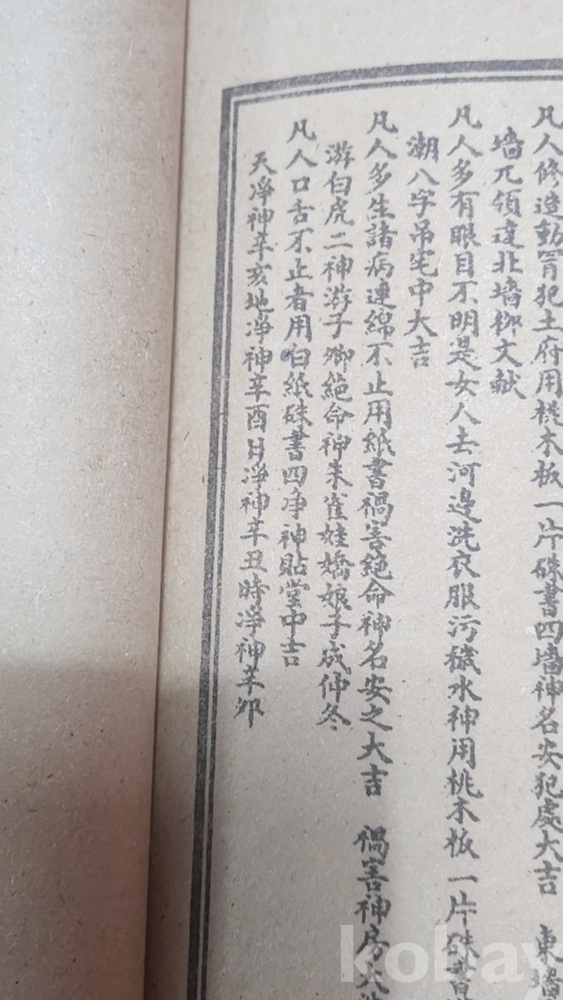 凡人修造動胃犯土府用桃木板一片硃書四墻神名安犯處大吉 東墻
墻兀領達北墻柳文献
凡人多有眼目不明是女人去河邊洗衣服污穢水神用桃木板一片硃書
潮八字吊宅中大吉
凡人多生諸病連綿不止用紙書禍害絕命神名安之大吉 禍害神房大
游白虎二神游子卿絕命神朱雀娃嬌娘子成仲冬
凡人口舌不止者用白紙硃書四净神貼堂中吉
天净神辛亥地净神辛酉日净神辛丑時净神辛卯
kobay